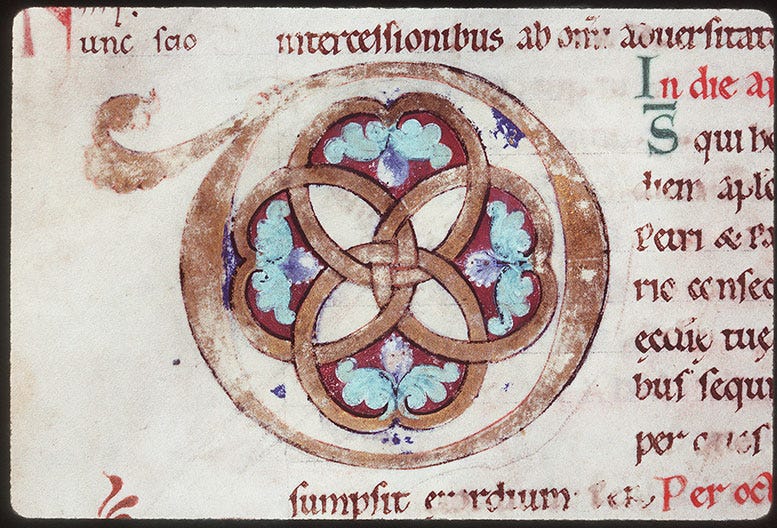 Nunc scio intercessionibus ab omi aduersitat
In die ap
DS qui ho
diem aplo
Petri & Pa
ric consec
eccliȩ tuȩ
bus sequi
per quos
sumpsit exordium Per oct